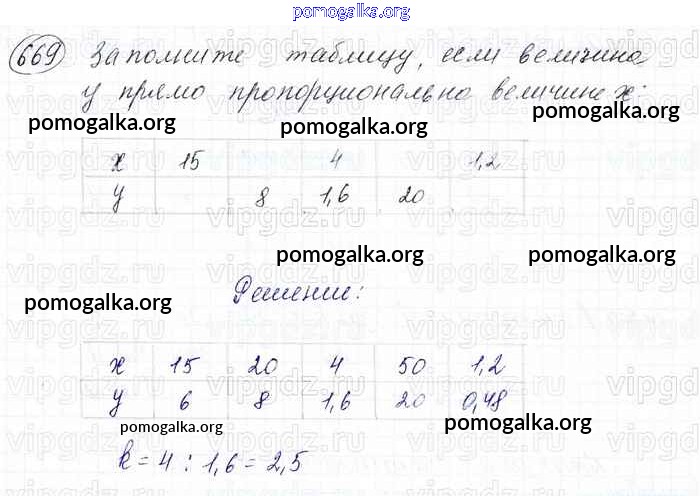 pomogalka.org
669 Заполните таблицу, если величина
у прямо пропорциональна величине х:
pomogalka.org pomogalka.org pomogalka.org
х 15 4 1,2
у 8 1,6 20
pomogalka.org pomogalka.org
pomogalka.org Решение:
х 15 20 4 50 1,2
у 6 8 1,6 20 0,48
pomogalka.org pomogalka.org
k = 4 : 1,6 = 2,5